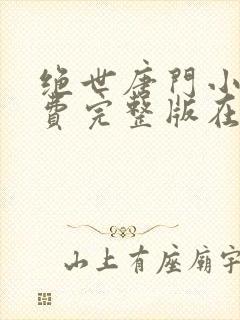 绝世唐門小
費完整版在
山上有座廟宇